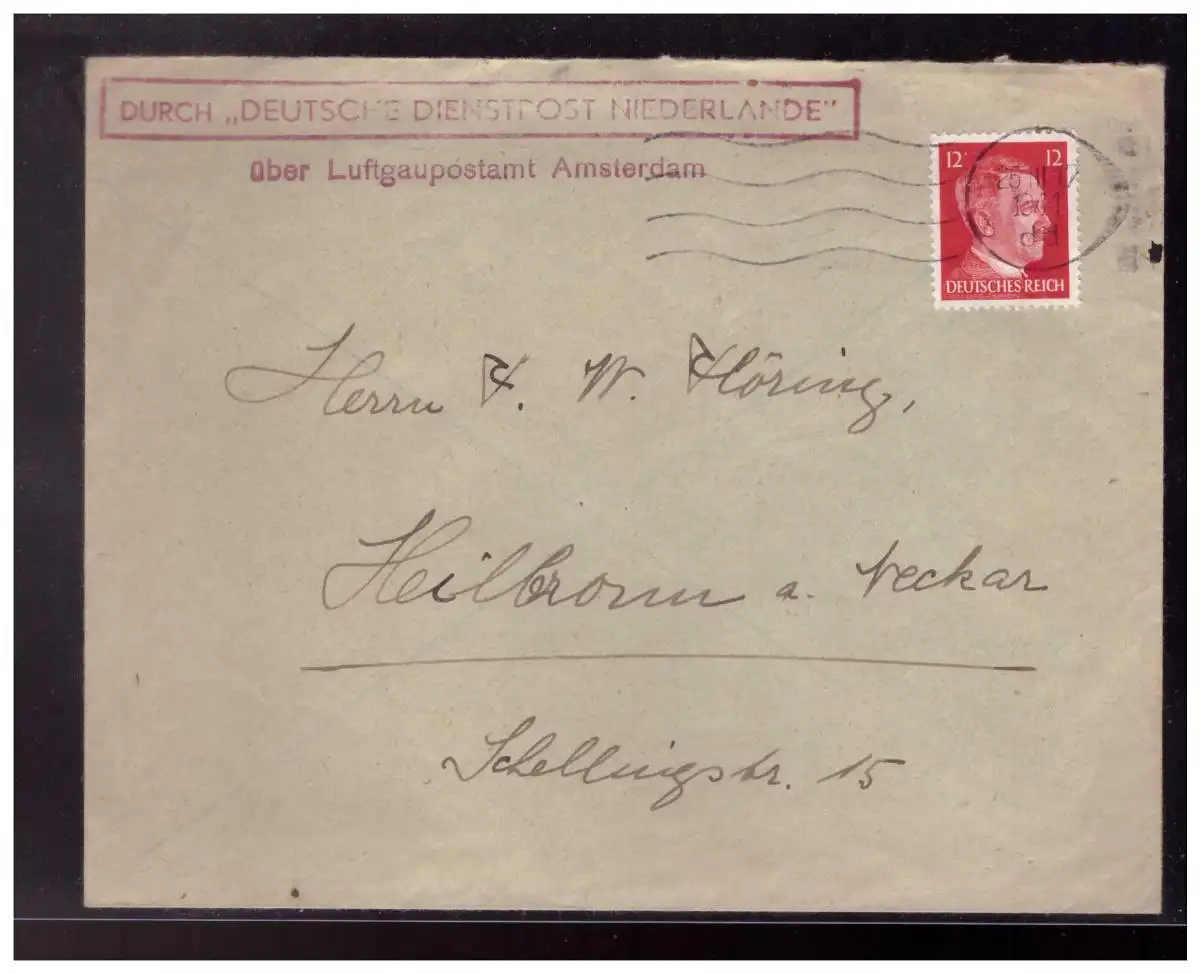 DURCH „DEUTSCHE DIENSTPOST NIEDERLANDE"
über Luftgaupostamt Amsterdam
12 12
25
DEUTSCHES REICH
Herrn F. W. Höring,
Heilbronn a. Neckar
Schellingstr. 15